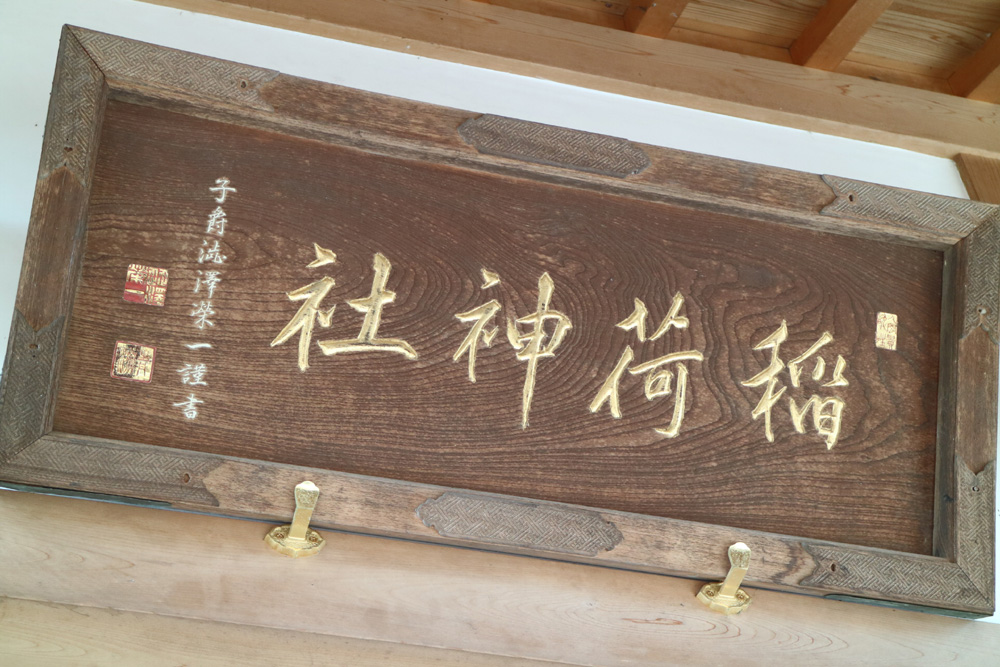 稲荷神社
子爵澁澤榮一謹書